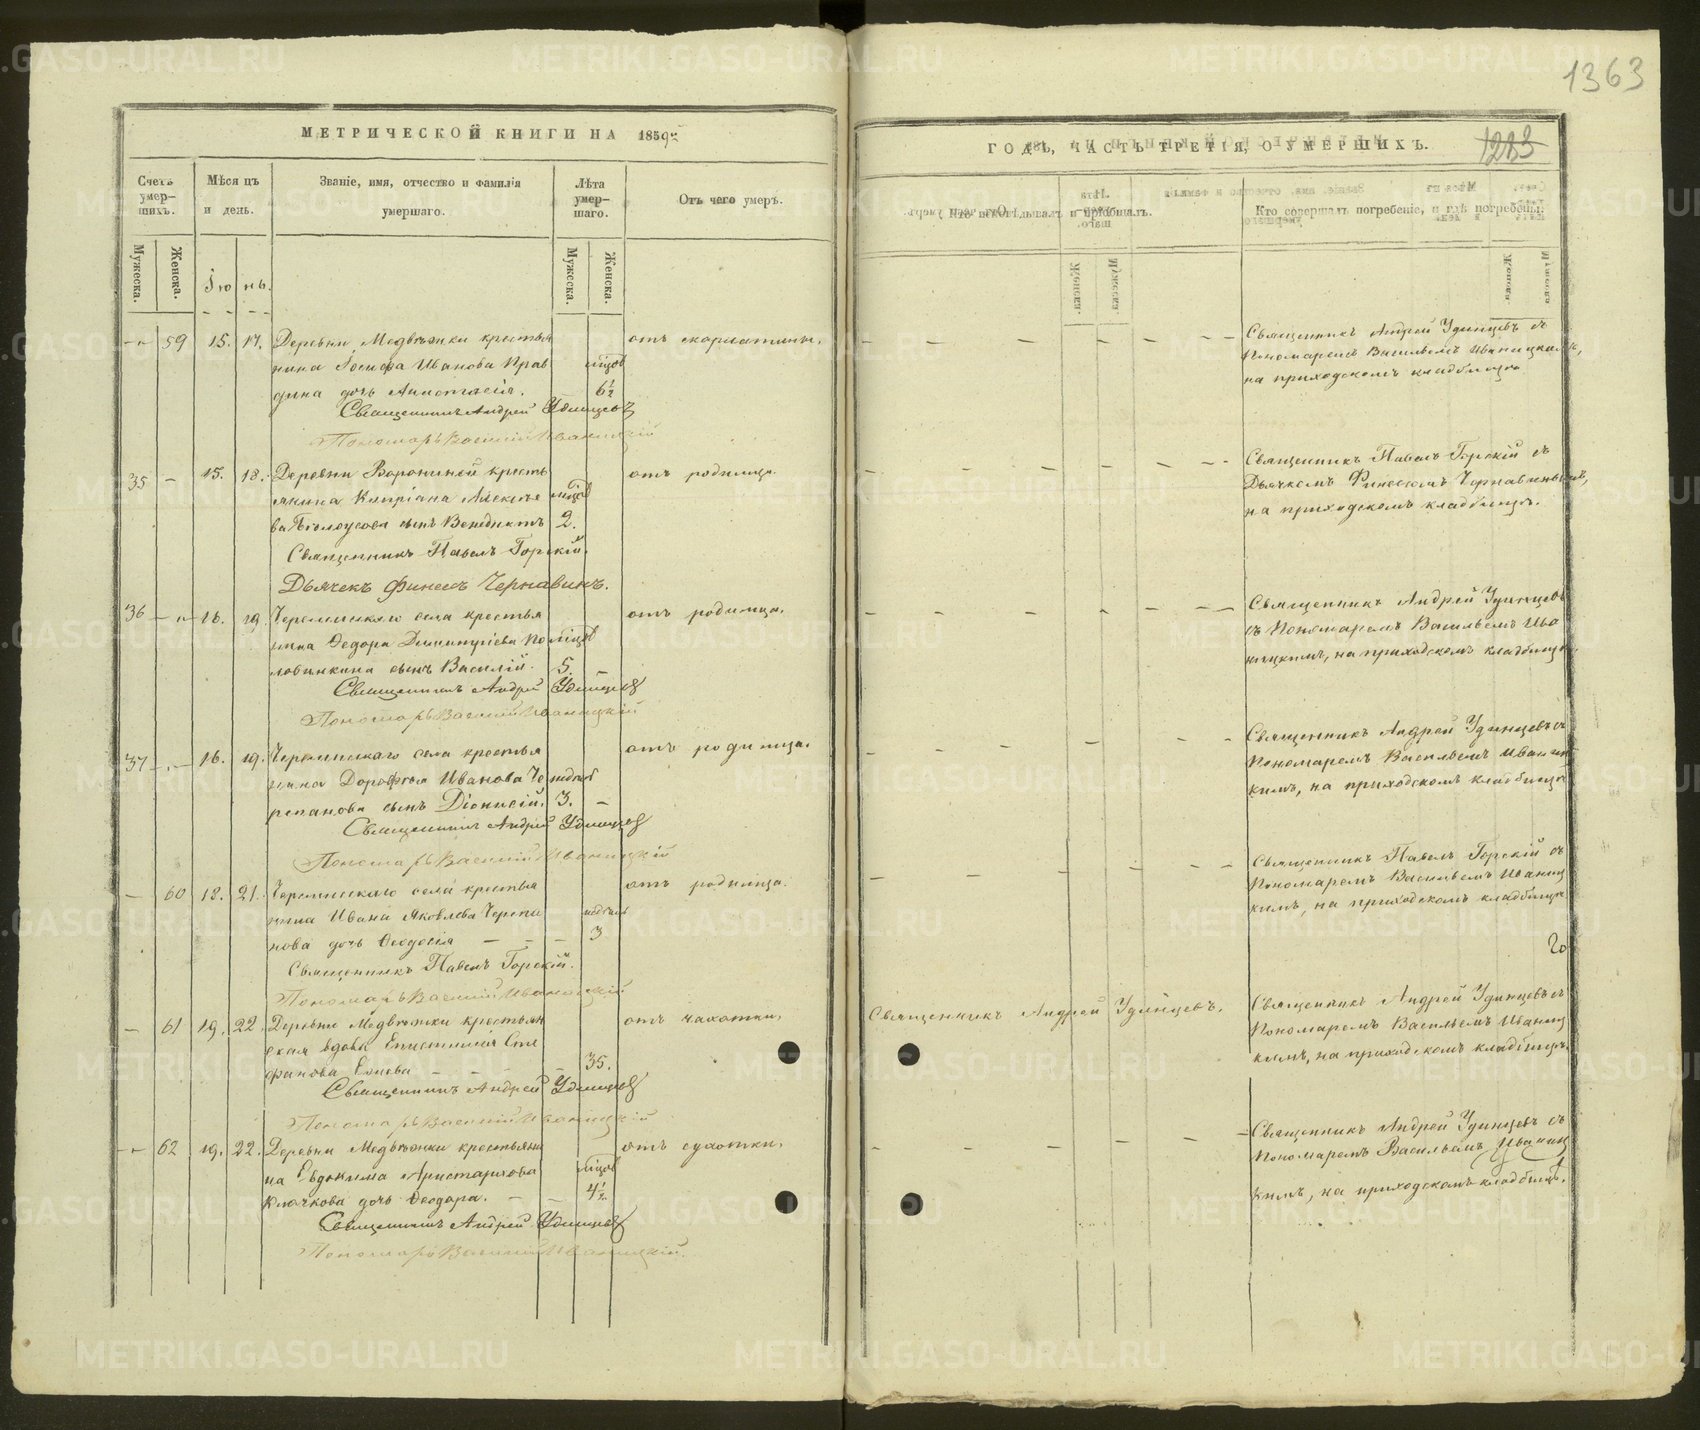 1363
МЕТРИЧЕСКОЙ КНИГИ НА 1859й
ГОДЪ, ЧАСТЬ ТРЕТІЯ, О УМЕРШИХЪ.
Счетъ умер-шихъ.
Мѣсяцъ и день.
Званіе, имя, отчество и фамилія умершаго.
Лѣта умер-шаго.
Отъ чего умеръ.
Кто исповѣдывалъ и пріобщалъ.
Кто совершалъ погребеніе, и гдѣ погребены.
Мужеска.
Женска.
Мужеска.
Женска.
Іюнь.
59 15. 17. Деревни Медвѣжки крестья
нина Іосифа Иванова Прав
дина дочь Анастасія. 6½
отъ скарлатины.
Священникъ Андрей Удинцевъ
Пономарь Василій Иваницкій
Священникъ Андрей Удинцевъ съ
Пономаремъ Васильемъ Иваницкимъ,
на приходскомъ кладбищѣ
35 15. 18. Деревни Ворониной кресть
янина Кипріана Алексѣе
ва Бѣлоусова сынъ Венедиктъ 2.
отъ родимца.
Священникъ Павелъ Горскій.
Дьячекъ Финеесъ Чернавинъ.
Священникъ Павелъ Горскій съ
Дьячкомъ Финеесомъ Чернавинымъ,
на приходскомъ кладбищѣ.
36 16. 19. села крестья
нина Ѳедора Димитріева
сынъ Василій. 5.
отъ родимца.
Священникъ Андрей Удинцевъ
Пономарь Василій Иваницкій
Священникъ Андрей Удинцевъ
съ Пономаремъ Васильемъ Ива
ницкимъ, на приходскомъ кладбищѣ.
37 16. 19. села крестья
нина Дорофея Иванова Че недѣль
репанова сынъ Діонисій. 3.
отъ родимца.
Священникъ Андрей Удинцевъ
Пономарь Василій Иваницкій
Священникъ Андрей Удинцевъ съ
Пономаремъ Васильемъ Иваниц
кимъ, на приходскомъ кладбищѣ
60 18. 21. села крестья
нина Ивана Яковлева Черепа недѣль
нова дочь Ѳеодосія 3
отъ родимца.
Священникъ Павелъ Горскій.
Пономарь Василій Иваницкій
Священникъ Павелъ Горскій съ
Пономаремъ Васильемъ Иваниц
кимъ, на приходскомъ кладбищѣ
61 19. 22. Деревни Медвѣжки крестьян
ская вдова Сте
фанова 35.
отъ чахотки,
Священникъ Андрей Удинцевъ
Пономарь Василій Иваницкій
Священникъ Андрей Удинцевъ.
Священникъ Андрей Удинцевъ съ
Пономаремъ Васильемъ Иваниц
кимъ, на приходскомъ кладбищѣ.
62 19. 22. Деревни Медвѣжки крестьяни
на Евдокима Аристархова
Клочкова дочь Ѳеодора. 4½
отъ сухотки,
Священникъ Андрей Удинцевъ
Пономарь Василій Иваницкій.
Священникъ Андрей Удинцевъ съ
Пономаремъ Васильемъ Иваниц
кимъ, на приходскомъ кладбищѣ.
METRIKI.GASO-URAL.RU